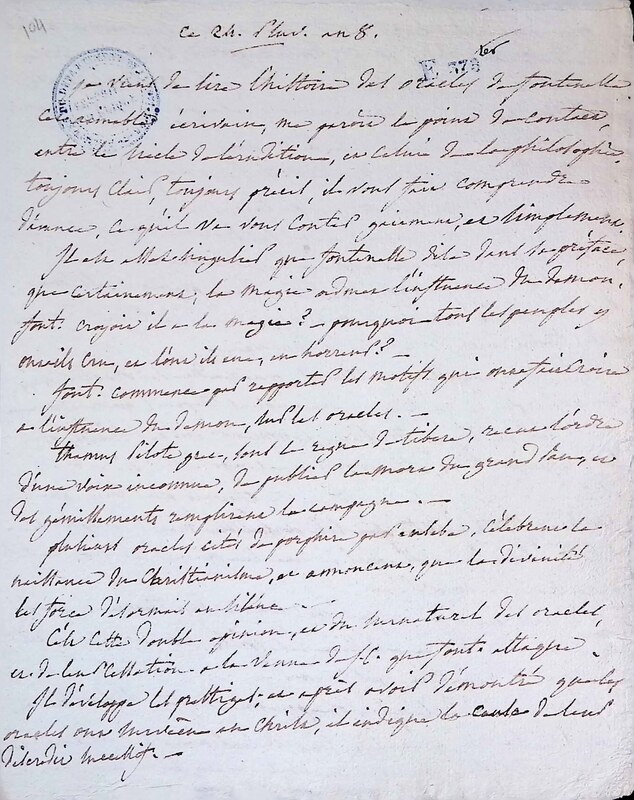 104
ce 24. Pluv. an 8.
E 378
je viens de lire l'histoire des oracles de fontenelle
ce aimable écrivain, me paroît le point de contact,
entre le siecle de l'érudition, et celui de la philosophie.
toujours clair, toujours précis, il vous fait comprendre
d'avance, ce qu'il va vous conter gaiement, et simplement.
Il est assez singulier que fontenelle dise dans sa préface,
que certainement, la magie admet l'influence du demon.
font. croyoit il a la magie? - pourquoi tous les peuples y
ont ils cru, et l'ont ils eue, en horreur? -
font. commence par rapporter les motifs qui ont fait croire
a l'influence du demon, sur les oracles. -
thamus pilote grec, sous le regne de tibere, recut l'ordre
d'une voix inconnue, de publier la mort du grand pan, et
des gémissements remplirent la campagne. -
plusieurs oracles cités de porphire par eusebe, célèbrent la
naissance du Christianisme, et annoncent, que la divinité
les force désormais au silence. -
C'est cette double opinion, et du surnaturel des oracles,
et de leur cessation a la venue de J.C. que font. attaque
Il développe les prestiges, et après avoir démontré que les
oracles ont survécu au Christ, il indique la cause de leur
discredit